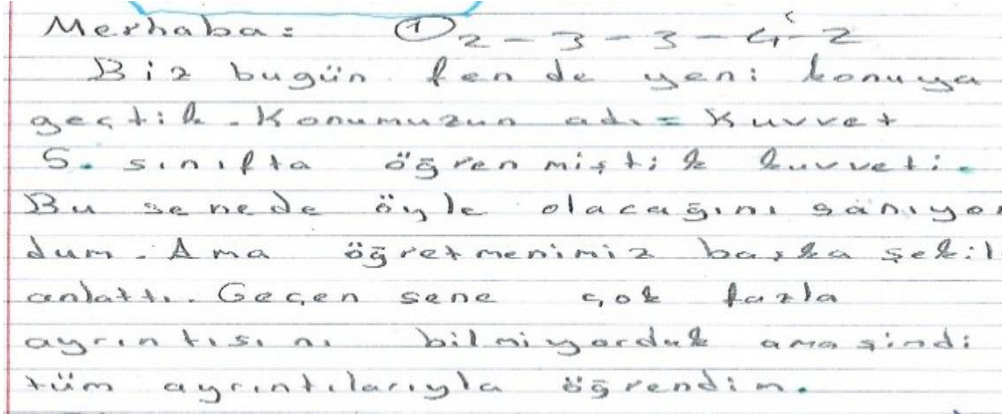 Merhaba: ① 2-3-3-4-2
Biz bugün fen de yeni konuya
geçtik. Konumuzun adı= Kuvvet
5. sınıfta öğrenmiştik kuvveti.
Bu senede öyle olacağını sanıyor
dum. Ama öğretmenimiz başka şekil
anlattı. Geçen sene çok fazla
ayrıntısını bilmiyorduk ama şindi
tüm ayrıntılarıyla öğrendim.